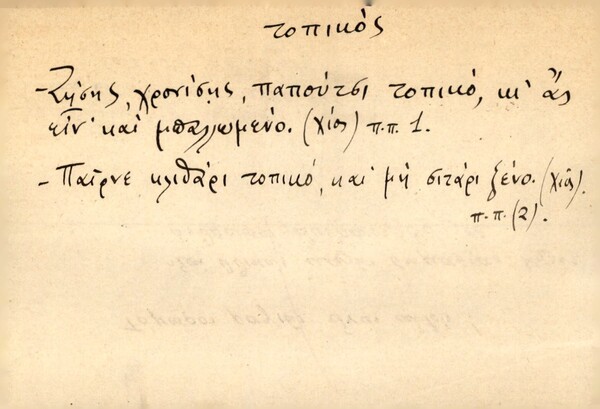 τοπικός
-Ζήσης, χρονίσης, παπούτσι τοπικό, κι' ἄς
εἶν' καὶ μπαλλωμένο. (Χίος) π.π. 1.
- Παῖρνε κλιθάρι τοπικό, καὶ μὴ σιτάρι ξένο. (Χίος).
π.π. (2).